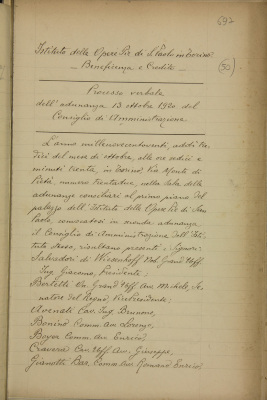 692
Istituto delle Opere Pie di S. Paolo in Torino
(50)
- Beneficenza e Credito -
Processo verbale
dell'adunanza 13 ottobre 1920 del
Consiglio di Amministrazione
L'anno millenovecentoventi, addì tre
dici del mese di ottobre, alle ore sedici e
minuti trenta, in Torino, Via Monte di
Pietà, numero trentadue, nella sala delle
adunanze consiliari al primo piano del
palazzo dell'Istituto delle Opere Pie di San
Paolo, convocatosi in seconda adunanza
il Consiglio di Amministrazione dell'Isti-
tuto stesso, risultano presenti i Signori:
Salvadori di Wiesenhoff Nob. Grand'Uff.
Ing. Giacomo, Presidente;
Bertetti On. Grand'Uff. Avv. Michele, Se-
natore del Regno, Vicepresidente;
Avenati Cav. Ing. Bruno,
Bonino Comm. Avv. Lorenzo,
Boyer Comm. Avv. Enrico,
Craveri Cav. Uff. Avv. Giuseppe,
Gianotti Bar. Comm. Avv. Romano Enrico,